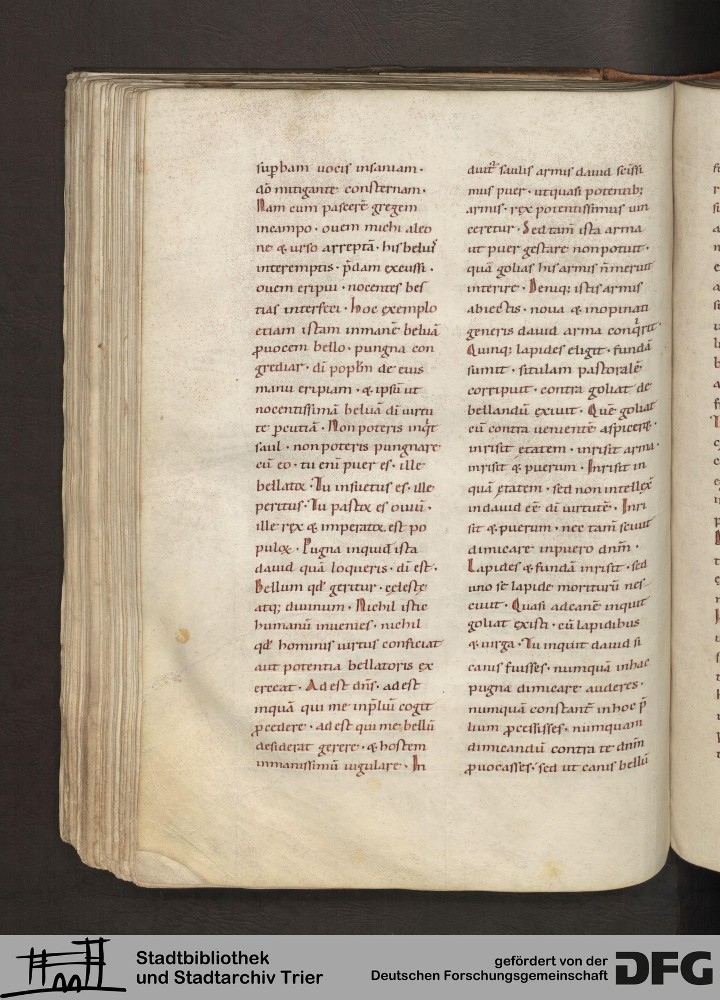 sup̱bam uocis insaniam·
dō mitigante consternam·
Nam cum pascerē gregem
incampo· ouem michi aleo
ne & urso arreptā· his beluiˢ
interemptis· p̄dam excussi·
ouem eripui· nocentes bes
tias interfeci· hoc exemplo
etiam istam inmanē beluā
ꝓuocem bello· pungna con
grediar· dī poplm̄ de euis
manu eripiam· & ipsū ut
nocentissimā beluā dī uirtu
te ꝑcutiā· Non poteris inqͥt
saul· non poteris pungnare
cū eo· tu enī puer es· ille
bellator· Tu insuetus es· ille
peritus· Tu pastor es ouiū·
ille rex & imperator est po
puloꝝ· Pugna inquid ista
dauid quā loqueris· dī est·
Bellum qd̄ geritur· cęlestę
atq; diuinum· Nichil istic
humanū inuenies· nichil
qd̄ hominis uirtus conficiat
aut potentia bellatoris ex
erceat· Adest dn̄s· adest
inquā qui me inp̄liū cogit
ꝓcedere· adest qui me bellū
desiderat gerere· & hostem
inmanissimū iugulare· In
duit᷒ saulis armis dauid fcissi
mus puer· utquasi potentib;
armis· rex potentissimus uin
ceretur· Sed tam̄ ista arma
ut puer gestare non potuit·
quā golias his armis n̄ meruit
interire· Deniq; istis armis
abiectis· noua & inopinati
generis dauid arma conqͥrit·
Quinq; lapides eligit· fundā
sumit· situlam pastoralē
corripuit· contra goliat de
bellandū exiuit· Quē goliat
cū contra uenientē aspiceret·
inrisit etatem· inrisit arma·
inrisit & puerum· Inrisit in
quā ętatem· sed non intellex̄
indauid eē dī uirtutē· Inri
sit & puerum· nec tam̄ sciuit
dimicare inpuero dnm̄·
Lapides & fundā inrisit· sed
uno se lapide moriturū nes
ciuit· Quasi adcanē inquit
goliat existi· cū lapidibus
& uirga· Tu inquit dauid si
canis fuisses· numquā inhac
pugna dimicare auderes·
numquā constant̄ inhoc p̄
lium ꝓcessisses· numquam
dimicandū contra te dnm̄
ꝓuocasses· sed ut canis bellū
Stadtbibliothek
und Stadtarchiv Trier
gefördert von der
Deutschen Forschungsgemeinschaft
DFG